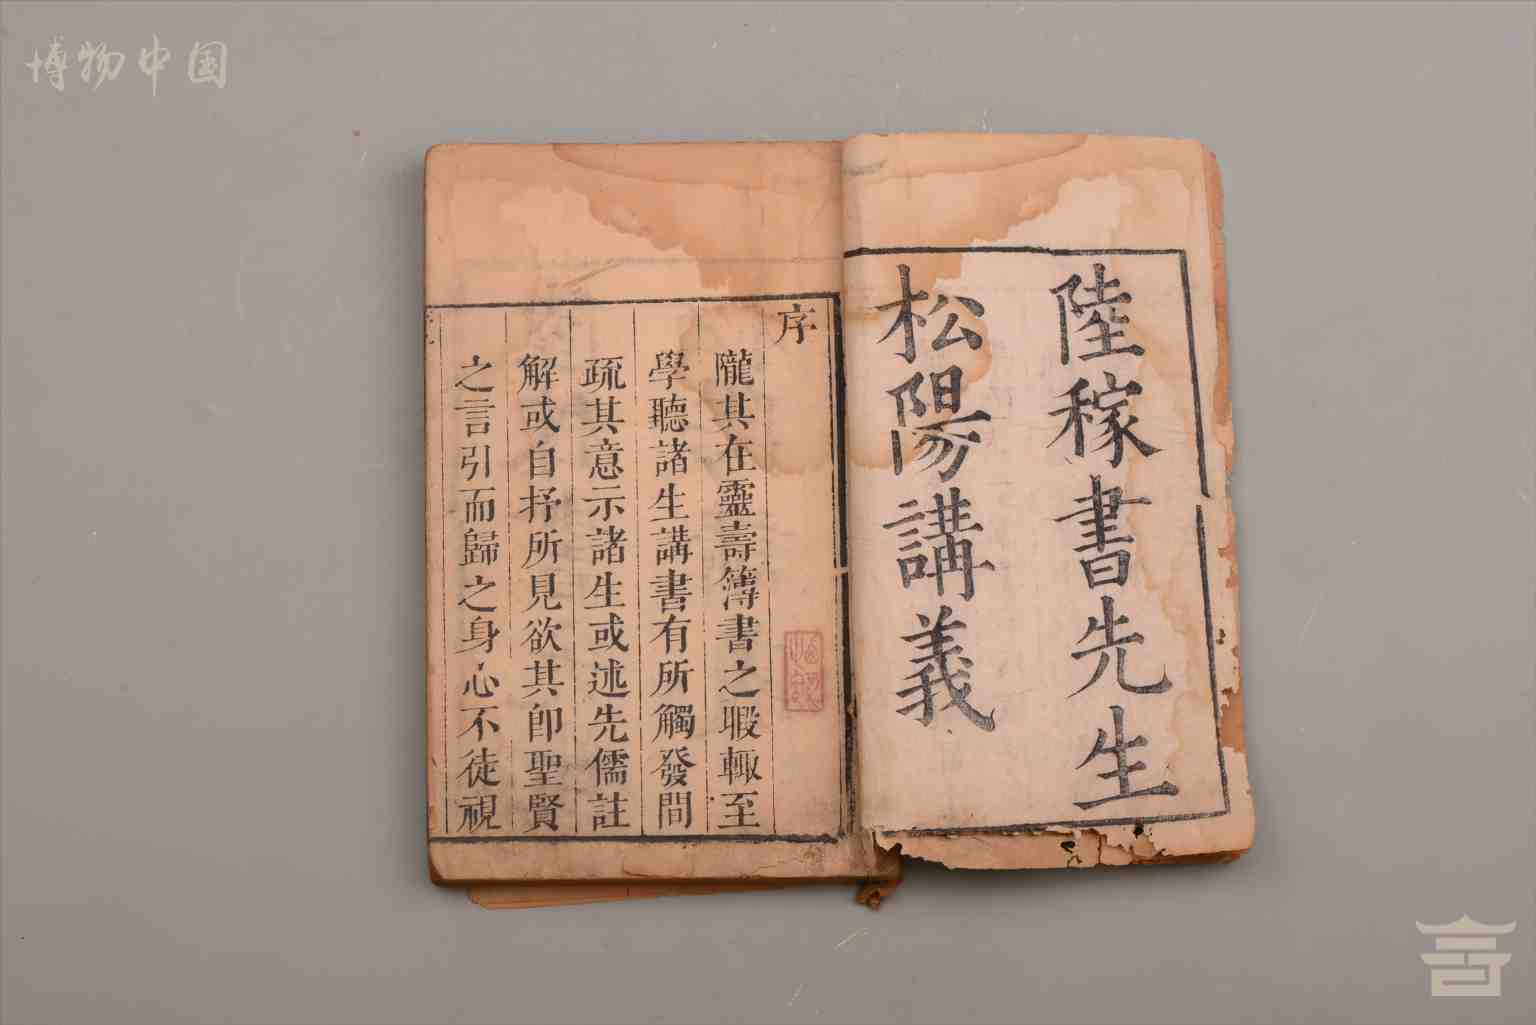 博物中国
陸稼書先生
松陽講義
序
隴其在靈壽簿書之暇輒至
學聽諸生講書有所觸發問
疏其意示諸生或述先儒註
解或自抒所見欲其卽聖賢
之言引而歸之身心不徒視